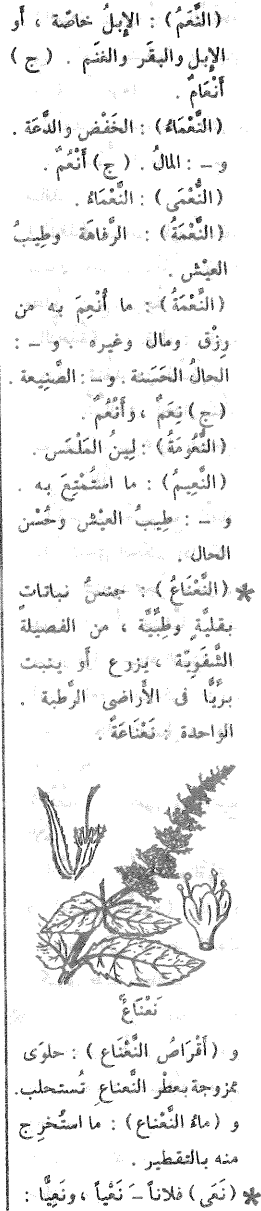 (النَّعَمُ) : الإِبلُ خاصّة ، أَو
الإِبل والبقَر والغنَم . (ج)
أَنْعَامٌ .
(النَّعْمَاءُ) : الخَفْض والدَّعَة .
و – : المالُ . (ج) أَنْعُمٌ .
(النُّعْمَى) : النَّعْمَاءُ .
(النَّعْمَةُ) : الرَّفاهَة وطِيبُ
العيْش .
(النِّعْمَةُ) : ما أُنْعِمَ به من
رِزْق ومال وغيره . و – :
الحالُ الحَسَنة . و – : الصَّنِيعة .
(ج) نِعَمٌ ، وأَنْعُمٌ .
(النُّعُومَةُ) : لِينُ المَلْمَس .
(النَّعِيمُ) : ما استُمْتِعَ به .
و – : طِيبُ العيْش وحُسْن
الحال .
* (النَّعْنَاعُ) : جنسُ نباتاتٍ
بقليَّة وطِبِّيَّة ، من الفصيلة
الشَّفَوِيّة ، يزرع أَو ينبت
برِّيًّا فى الأَراضى الرَّطبة .
الواحدة : نَعْنَاعَةٌ .
نَعْنَاعٌ
و (أَقْرَاصُ النَّعْنَاع) : حلوَى
ممزوجة بعطْر النَّعناع تُستحلب.
و (ماءُ النَّعْناع) : ما استُخرِج
منه بالتقطير .
* (نَعَى) فلاناً – نَعْياً ، ونَعِيًّا :